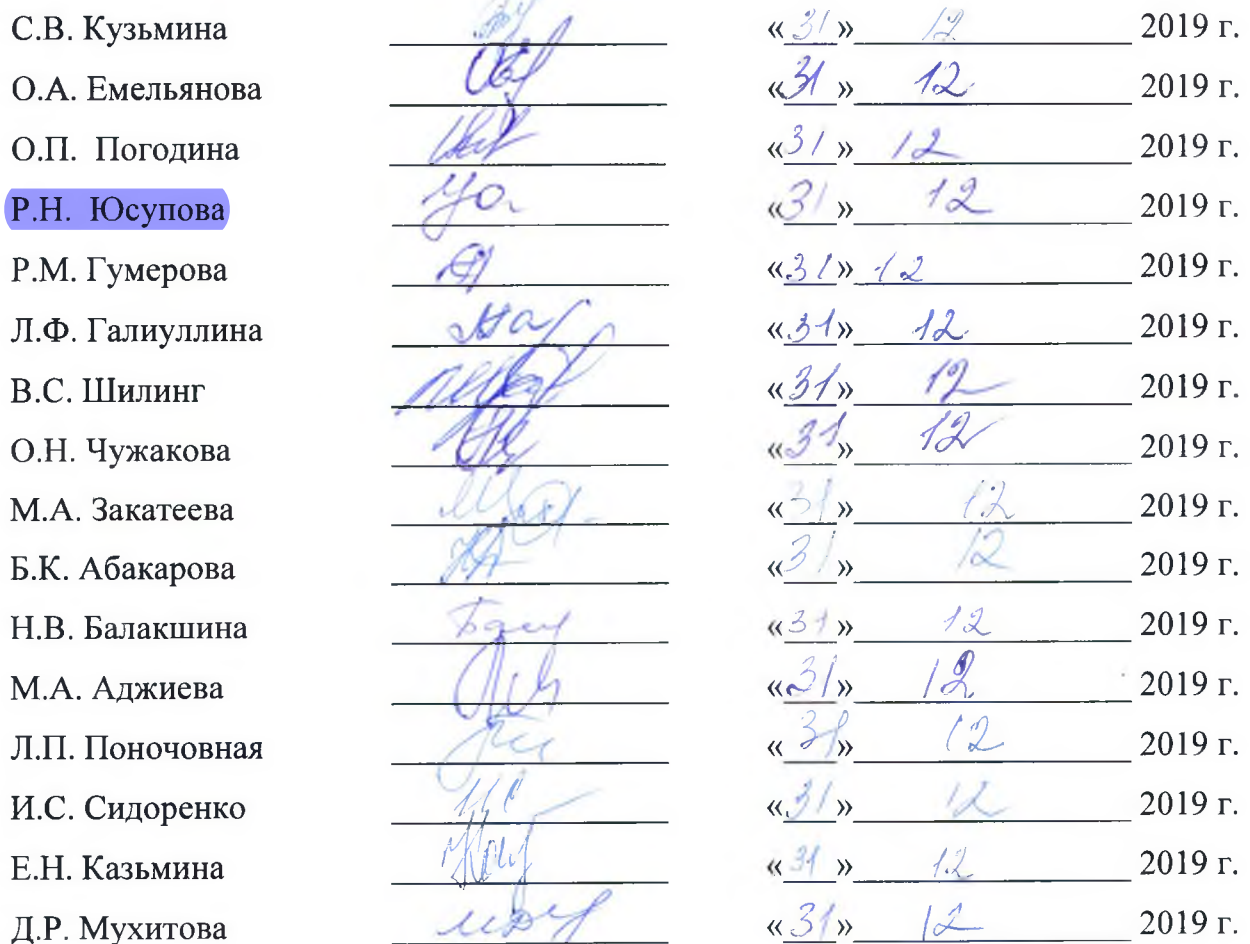 С.В. Кузьмина «31» 12 2019 г.
О.А. Емельянова «31» 12 2019 г.
О.П. Погодина «31» 12 2019 г.
Р.Н. Юсупова «31» 12 2019 г.
Р.М. Гумерова «31» 12 2019 г.
Л.Ф. Галиуллина «31» 12 2019 г.
В.С. Шилинг «31» 12 2019 г.
О.Н. Чужакова «31» 12 2019 г.
М.А. Закатеева «31» 12 2019 г.
Б.К. Абакарова «31» 12 2019 г.
Н.В. Балакшина «31» 12 2019 г.
М.А. Аджиева «31» 12 2019 г.
Л.П. Поночовная «31» 12 2019 г.
И.С. Сидоренко «31» 12 2019 г.
Е.Н. Казьмина «31» 12 2019 г.
Д.Р. Мухитова «31» 12 2019 г.